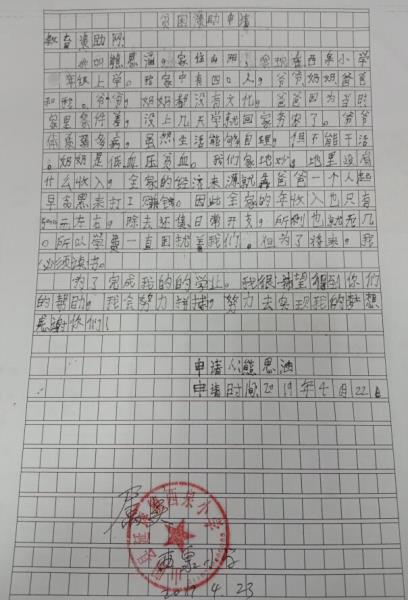 贫困资助申请
教育资助网：
我叫熊思涵，家住山湘，现在西泉小学
年级上学。我家中有四口人。爷爷奶奶爸爸
和我。爷爷，奶奶都没有文化，爸爸因为当时
家里条件差，没上几天学就回家务农了。爷爷
体质弱多病，虽然生活能够自理，但不能干活
，奶奶是低血压贫血。我们家地少，地里没有
什么收入，全家的经济来源就靠爸爸一个人起
早贪黑来打工赚钱。因此全家的年收入也只有
元左右，除去还债日常开支，所剩也就无几
。所以学费一直困扰着我们。但为了将来，我
必须读书。
为了完成我的的学业。我很希望得到你们
的帮助。我会努力拼搏，努力去实现我的梦想
感谢你们！
申请人熊思涵
申请时间2019年4月22日
属实
西泉小学
2019 4 23